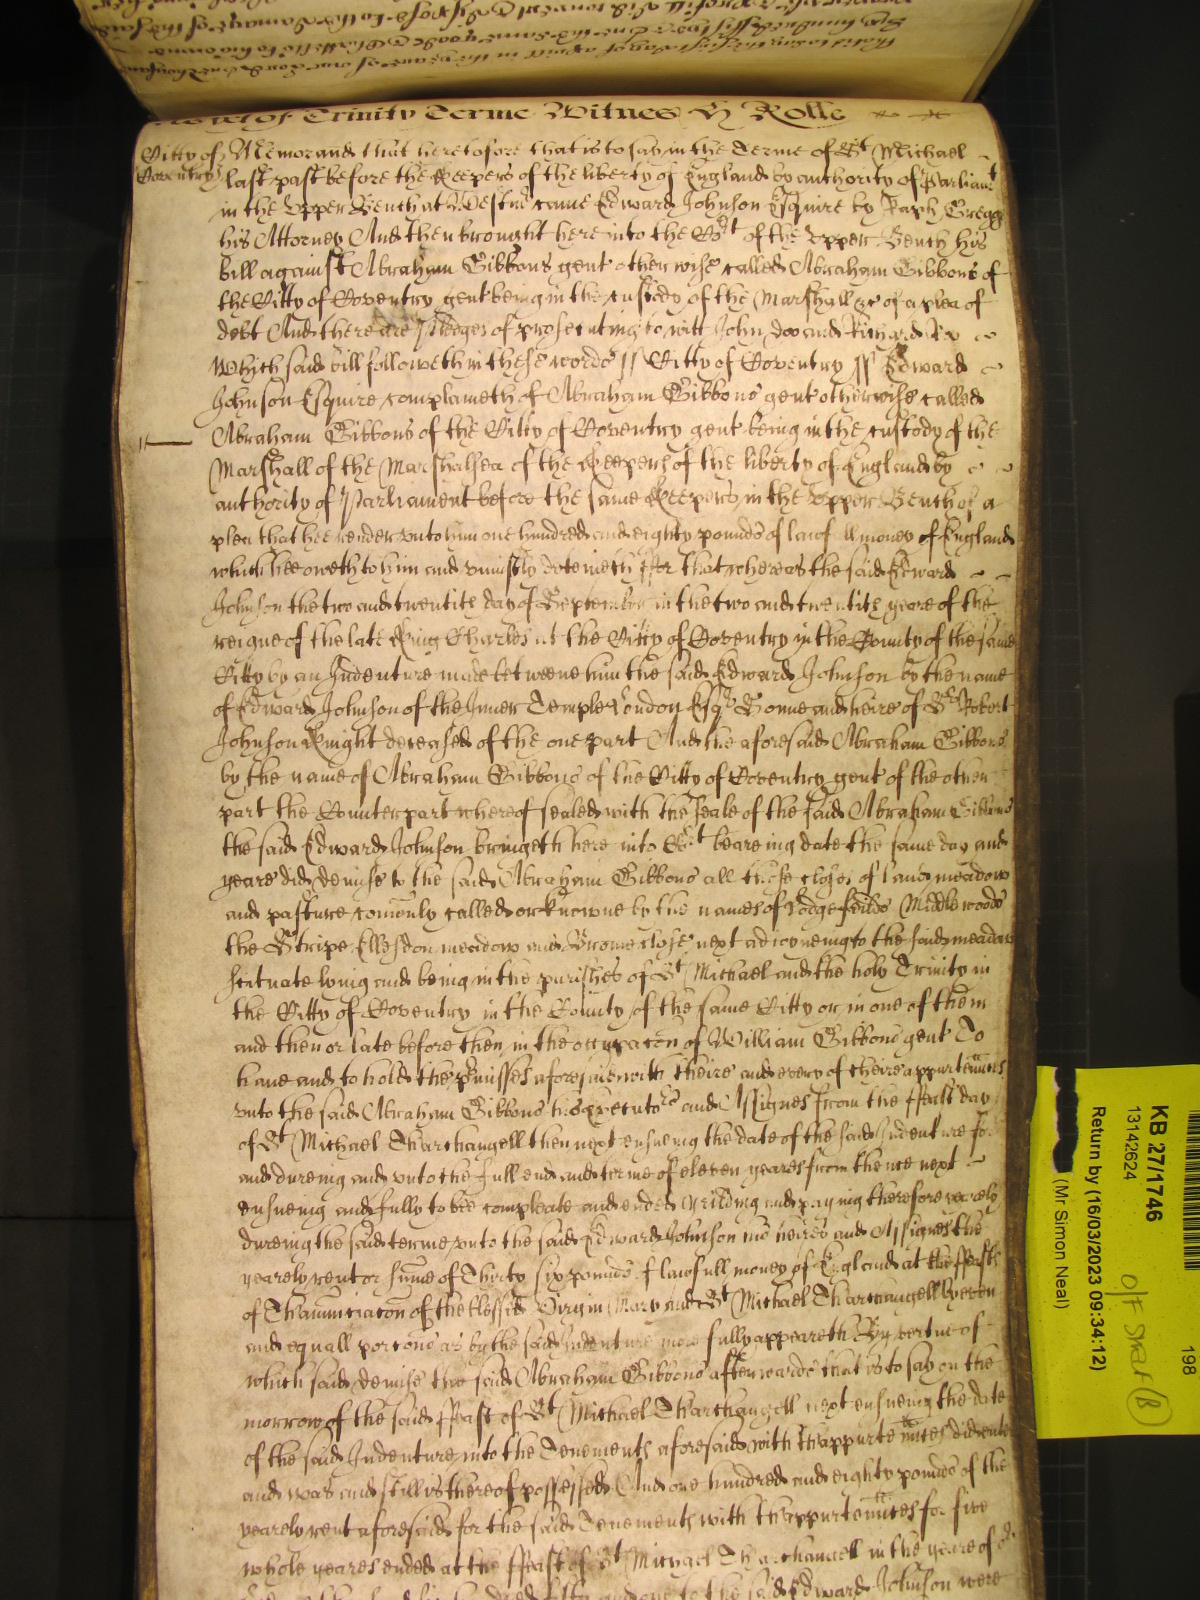 yet of Trinity Terme Witnes H Rolle
Citty of Memorand that heretofore that is to say in the Terme of St Michael
Coventry last past before the Keepers of the liberty of England by authority of Parliamt
in the Upper Bench at Westmr came Edward Johnson Esquire by Raph Gregg
his Attorney And then brought here into the Cort of the Upper Bench his
bill against Abraham Gibbons gent otherwise called Abraham Gibbons of
the Citty of Coventry gent being in the custody of the Marshall &c of a plea of
debt And there are pledges of prosecuting to witt John doo and Richard Roo
Which said bill followeth in these words // Citty of Coventry // Edward
Johnson Esquire complaineth of Abraham Gibbons gent otherwise called
Abraham Gibbons of the Citty of Coventry gent being in the custody of the
Marshall of the Marshalsea of the Keepers of the liberty of England by
authority of Parliament before the same Keepers in the Upper Bench of a
plea that hee render unto him one hundred and eighty pounds of lawfull money of England
which hee oweth to him and uniustly deteineth ffor that whereas the said Edward
Johnson the two and twentith day of September in the two and twentith yeare of the
reigne of the late King Charles at the Citty of Coventry in the County of the same
Citty by an Indenture made betweene him the said Edward Johnson by the name
of Edward Johnson of the Inner Temple London Esqr Sonne and heire of Sr Robert
Johnson Knight deceased of the one part And the aforesaid Abraham Gibbons
by the name of Abraham Gibbons of the Citty of Coventry gent of the other
part the Counterpart whereof sealed with the seale of the said Abraham Gibbons
the said Edward Johnson bringeth here into Cort beareing date the same day and
yeare did demise to the said Abraham Gibbons all those closes of land meadow
and pasture comonly called or knowne by the names of Lodge feilds Middle woods
the Stripe Ellesdon meadow and Broome close next adioyneing to the said meadow
scituate lying and being in the parishes of St Michael and the holy Trinity in
the Citty of Coventry in the County of the same Citty or in one of them
and then or late before then in the occupacon of William Gibbons gent To
have and to hold the prmisses aforesaid with theire and every of theire appurtenncs
unto the said Abraham Gibbons his executors and Assignes from the ffeast day
of St Michael Tharchangell then next ensueing the date of the said Indenture for
and dureing and unto the full end and terme of eleven yeares from thence next
ensueing and fully to bee compleate and ended Yeilding and paying therefore yearely
dureing the said terme unto the said Edward Johnson his heires and Assignes the
yearely rent or sume of Thirty six pounds of lawfull money of England at the ffeasts
of Thannunciacon of the blessed Virgin Mary and St Michael Tharchangell by even
and equall porcons as by the said Indenture more fully appeareth By vertue of
which said demise the said Abraham Gibbons afterwards that is to say on the
morrow of the said ffeast of St Michael Tharchangell next ensueing the date
of the said Indenture into the Tenements aforesaid with thappurtennces did enter
and was and still is thereof possessed And one hundred and eighty pounds of the
yearely rent aforesaid for the said Tenements with thappurtennces for five
whole yeares ended at the ffeast of St Michael Tharchangell in the yeare of o
to the said Edward Johnson were
198
KB 27/1746
13142624
O/F Straf (B)
Return by (16/03/2023 09:34:12)
(Mr Simon Neal)